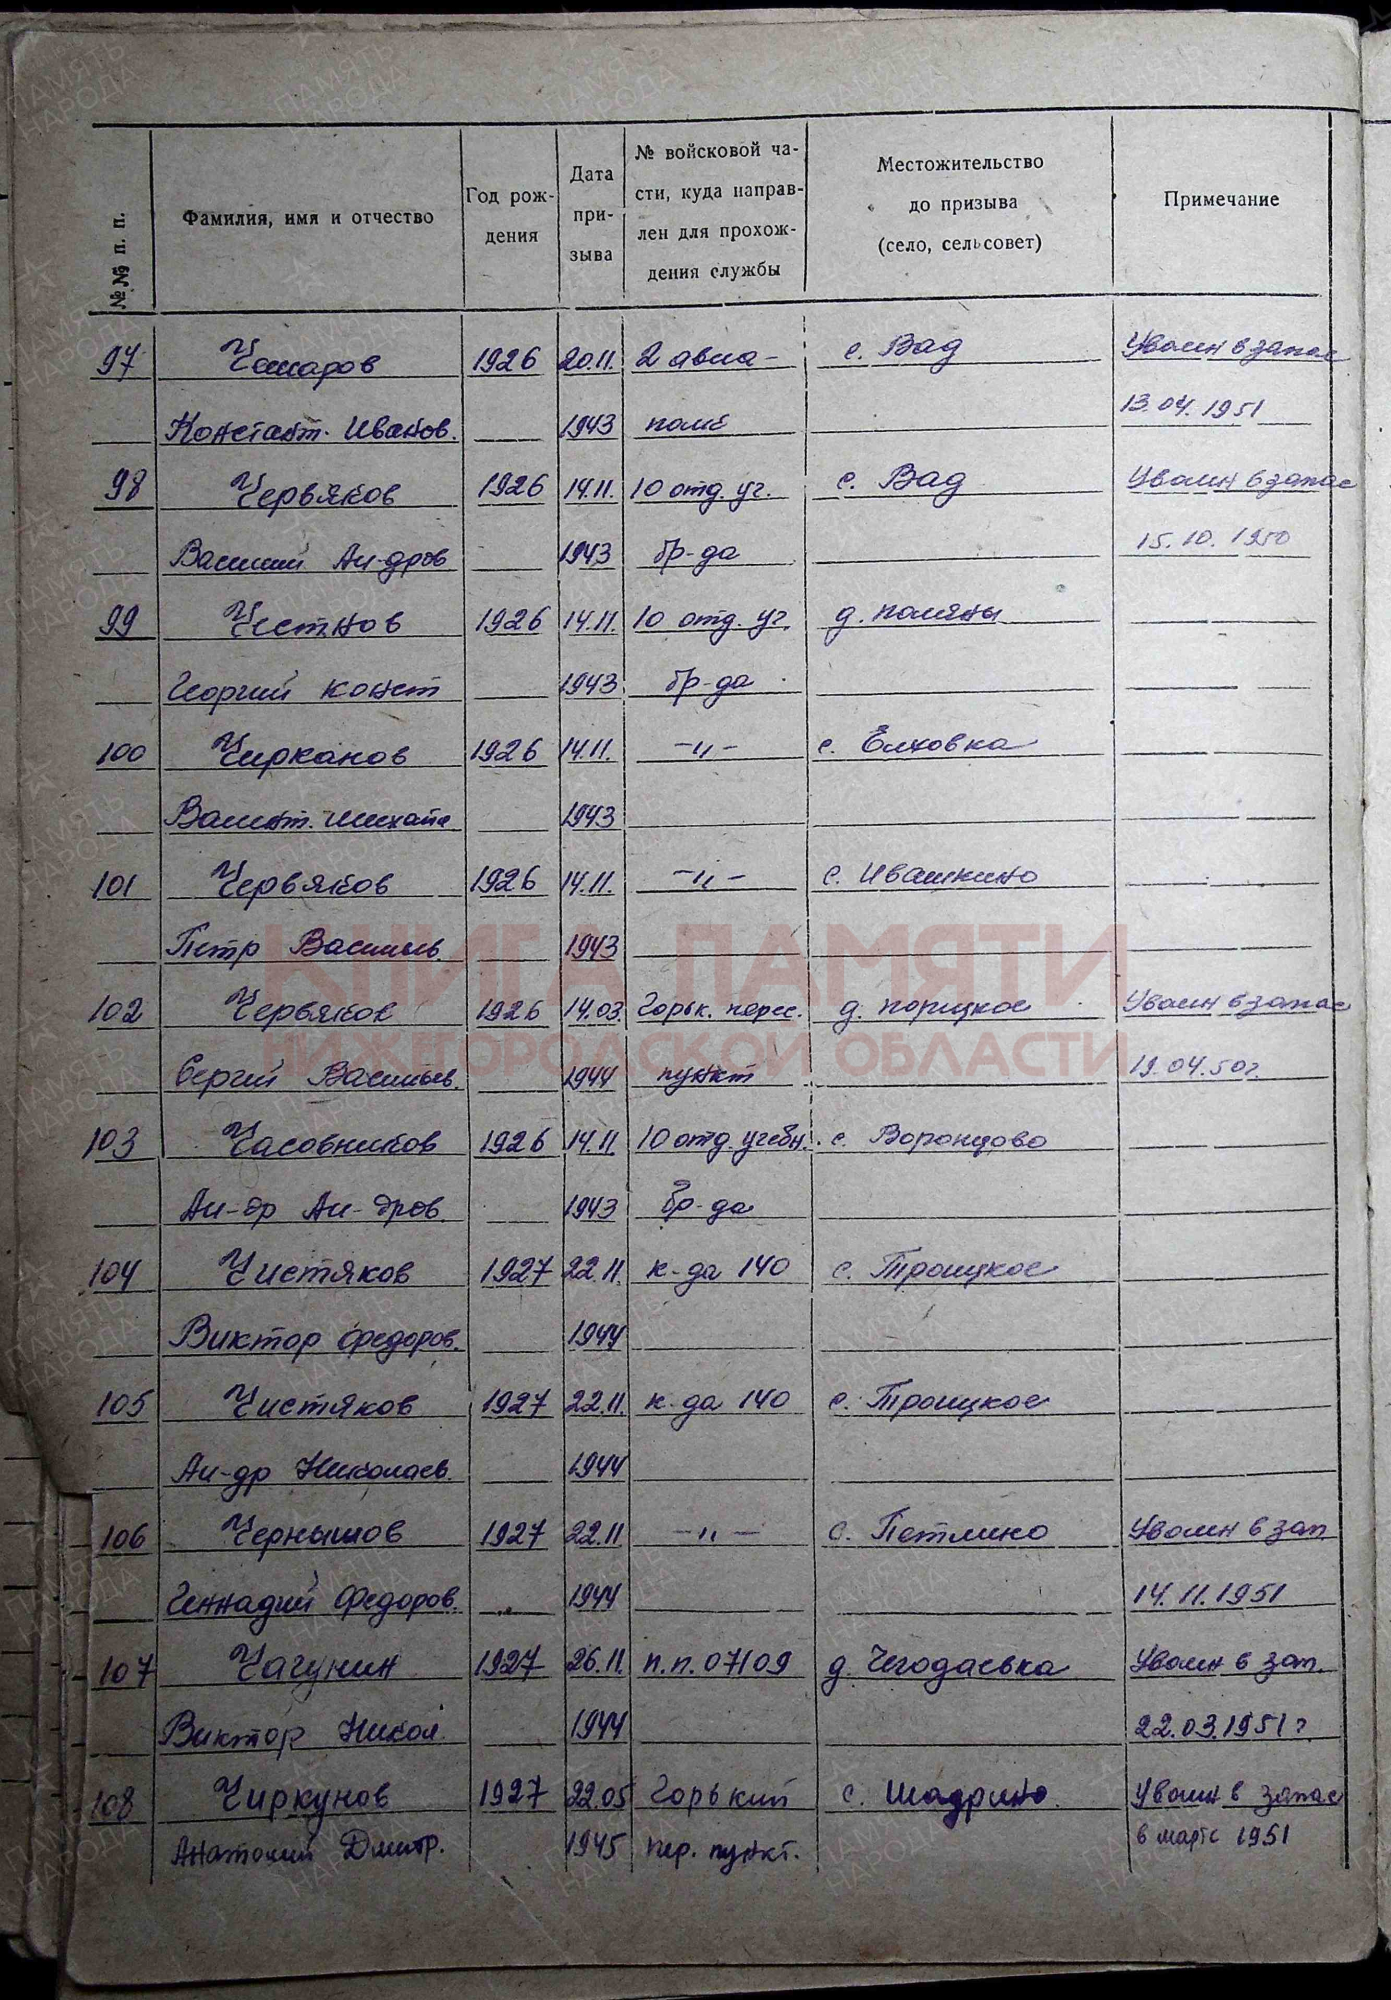 №№ п. п.
Фамилия, имя и отчество
Год рож-
дения
Дата
при-
зыва
№ войсковой ча-
сти, куда направ-
лен для прохож-
дения службы
Местожительство
до призыва
(село, сельсовет)
Примечание
97 1926 20.11. 2 авиа- с. Вад Уволен в запас
Констант. Иванов. 1943 полк 13.04.1951
98 Червяков 1926 14.11. 10 отд. уч. с. Вад Уволен в запас
Василий Ал-дров 1943 бр-да 15.10.1950
99 Честнов 1926 14.11. 10 отд. уч. д. поляны
Георгий конст 1943 бр-да
100 Чирканов 1926 14.11. -"- с. Елховка
Валент. Михайл 1943
101 Червяков 1926 14.11. -"- с. Ивашкино
Петр Васильев 1943
102 Червяков 1926 14.03. Горьк. перес. д. порицкое Уволен в запас
Сергей Васильев 1944 пункт 19.04.50г.
103 Часовников 1926 14.11. 10 отд. учебн. с. Воронцово
Ал-др Ал-дров. 1943 бр-да
104 Чистяков 1927 22.11. к-да 140 с. Троицкое
Виктор Федоров. 1944
105 Чистяков 1927 22.11. к-да 140 с. Троицкое
Ал-др Николаев. 1944
106 Чернышов 1927 22.11 -"- с. Петлино Уволен в зап
Геннадий Федоров. 1944 14.11.1951
107 Чагунин 1927 26.11. п.п. 07109 д. Чегодаевка Уволен в зап.
Виктор Никол 1944 22.03.1951г
108 Чиркунов 1927 22.05 Горький с. Шадрино. Уволен в запас
Анатолий Дмитр. 1945 пер. пункт. в марте 1951
КНИГА ПАМЯТИ
НИЖЕГОРОДСКОЙ ОБЛАСТИ
ПАМЯТЬ
НАРОДА